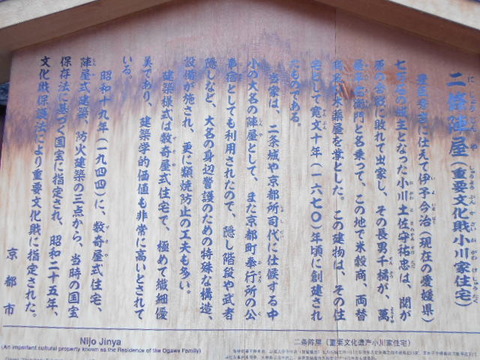 二条陣屋（重要文化財小川家住宅）
豊臣秀吉に仕えて伊予今治（現在の愛媛県）
七万石の城主となった小川土佐守祐忠は、関が
原の合戦に敗れて出家し、その長男千橘が、萬
屋平右衛門と名乗って、この地で米穀商、両替
商及び木薬屋を業とした。この建物は、その住
居として寛文十年（一六七〇）年頃に創建され
たものである。
当家は、二条城や京都所司代に仕候する中
小の大名の陣屋として、また京都町奉行所の公
事宿としても利用されたので、隠し階段や武者
隠しなど、大名の身辺警護のための特殊な構造
設備が施され、更に類焼防止の工夫も多い。
建築様式は数奇屋式住宅で、極めて繊細優
美であり、建築学的価値も非常に高いとされて
いる。
昭和十九年（一九四四）に、数奇屋式住宅、
陣屋式建築、防火建築の三点から、当時の国宝
保存法に基づく国宝に指定され、昭和二十五年、
文化財保護法により重要文化財に指定された。
京都市
Nijo Jinya
(An important cultural property known as the Residence of the Ogawa Family)
二条阵屋（重要文化遗产小川家住宅）